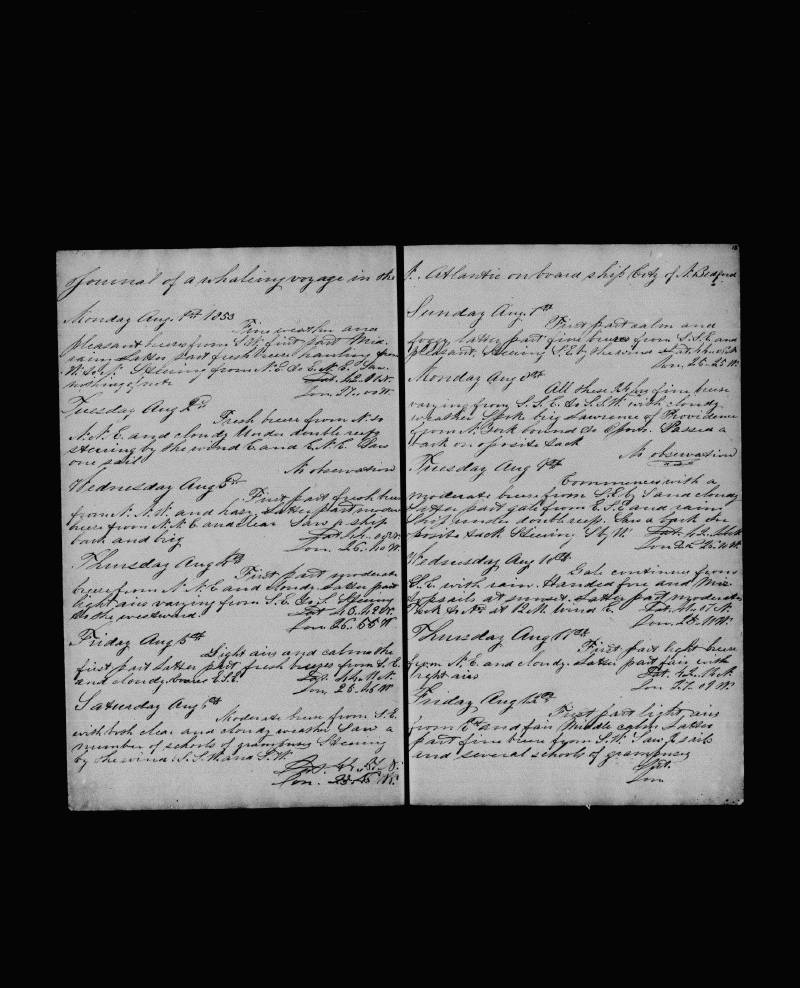 Journal of a whaling voyage in the
Monday Aug. 1st 1853
Fine weather and
pleasant breeze from S.W. first part Mid.
rain. Latter part fresh breeze hauling from
W. to N. Steering from N.E. to E.N.E. Saw
nothing of note Lat. 42
Lon. 27..00 W.
Tuesday Aug 2nd
Fresh breeze from N. to
N.N.E. and cloudy Under double reefs
steering by the wind E. and E.N.E. Saw
one sail
No observation
Wednesday Aug 3d
First part fresh breeze
from N.N.W. and hazy. Latter part moder
breeze from N.N.E. and clear Saw a ship
bark and brig Lat. 44
Lon. 26..40 W.
Thursday Aug 4th
First part moderate
breeze from N.N.E. and cloudy. Latter part
light airs varying from S.E. Steering
to the westward. Lat 45..42 N.
Lon 26..55 W.
Friday Aug 5th
Light airs and calms the
first part Latter part fresh breezes from S.E.
and cloudy. E.S.E. Lat. 44
Lon. 26..46 W.
Saturday Aug 6th
Moderate breeze from S.E.
with both clear and cloudy weather Saw a
number of schools of grampuses Steering
by the wind S.S.W. and S.W.
Lat. 44
Lon. 25
N. Atlantic on board ship City of N. Bedford
Sunday Aug. 7th
First part calm and
foggy Latter part fine breeze from S.S.E. and
pleasant. Steering S.E. by the wind Lat. 44
Lon. 25..25 W.
Monday Aug 8th
All these 24 hrs fine breeze
varying from S.S.E. to S.S.W. with cloudy
weather Spoke brig Lawrence of Providence
from N. York bound to Oporto. Passed a
bark on oposite tack
No observation
Tuesday Aug 9th
Commences with a
moderate breeze from S.E. by S and cloudy
Latter part gale from E.S.E. and rain
Ship under double reefs. Saw a bark on
oposite tack Steering S by W. Lat. 42
Lon 25
Wednesday Aug 10th
Gale continues from
S.E. with rain. Handed fore and Miz.
topsails at sunset. Latter part moderates
Tack to N'd at 12 M. Wind E. Lat. 41..17 N.
Lon. 25
Thursday Aug 11th
First part light breeze
from N.E. and cloudy. Latter part fair with
light airs Lat. 42
Lon 27..09 W.
Friday Aug 12th
First part light airs
from E'd and fair Middle calm. Latter
part fine breeze from S.W. Saw 2 sails
and several schools of grampuses
Lat.
Lon